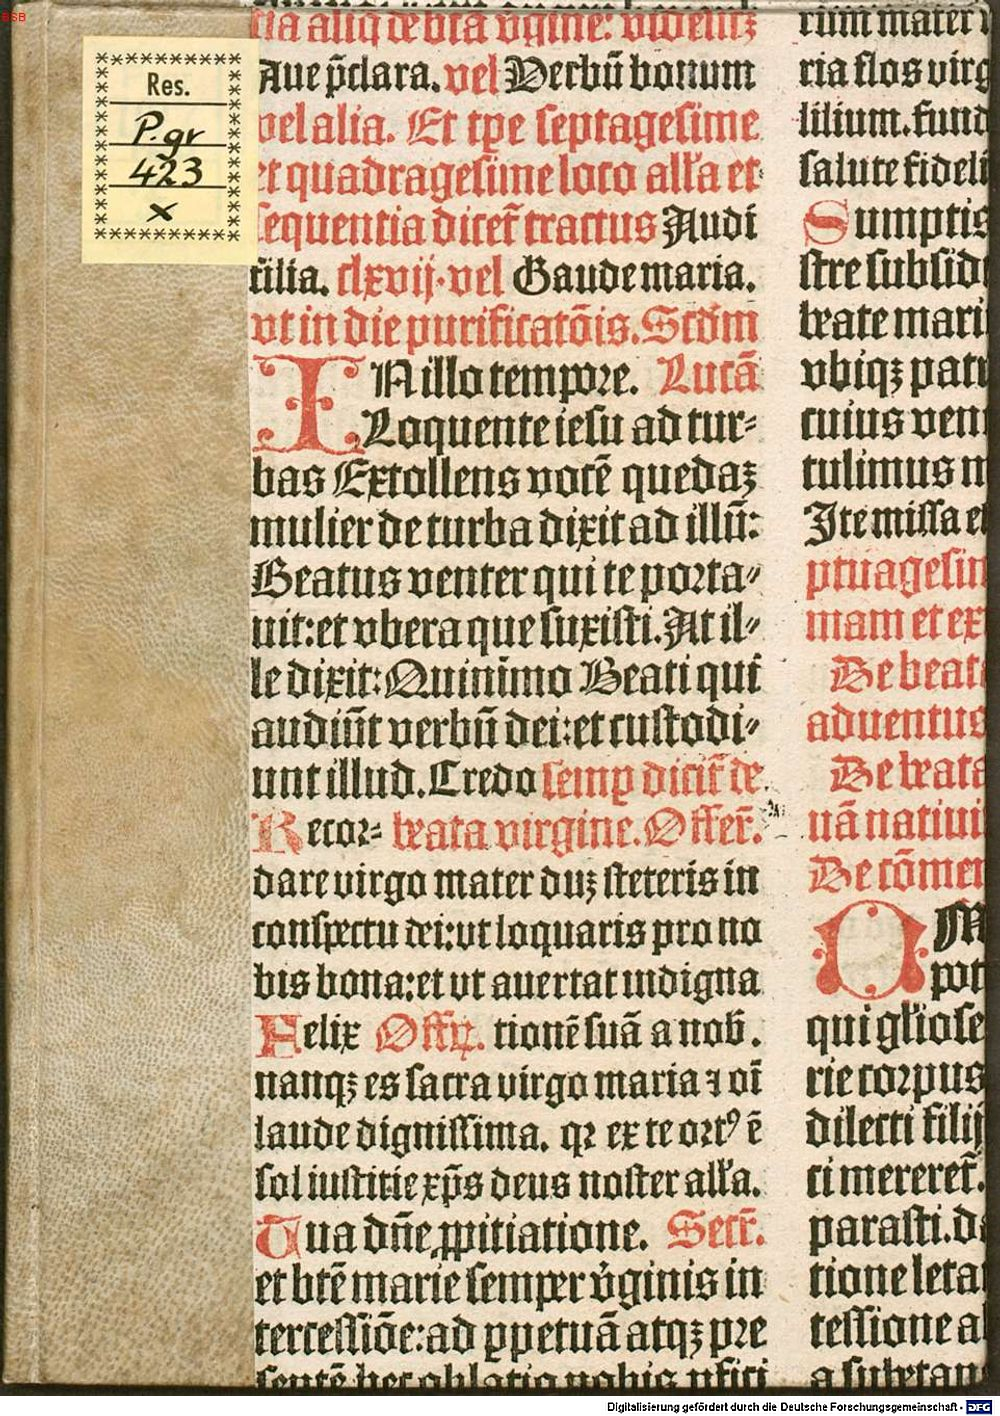 BSB
Res.
P.gr
423
x
tia aliq̃ de bta ṽgine: videlitz
Aue p̄clara. vel Verbũ bonum
vel alia. Et tꝑe septagesime
et quadragesime loco all'a et
sequentia dicet̃ tractus Audi
filia. clxvij. vel Gaude maria.
vt in die purificatõis. Scd̃m
IN illo tempore. Lucã
Loquente iesu ad tur⸗
bas Extollens vocẽ quedaꝫ
mulier de turba dixit ad illũ:
Beatus venter qui te porta⸗
uit: et vbera que suxisti. At il⸗
le dixit: Quinĩmo Beati qui
audiũt verbũ dei: et custodi⸗
unt illud. Credo semꝑ dicit̃ de
Recor⸗ beata virgine. Offer̃.
dare virgo mater duꝫ steteris in
conspectu dei: vt loquaris pro no
bis bona: et vt auertat indigna
Felix Offꝝ. tionẽ suã a nob̃.
nanqꝫ es sacra virgo maria ⁊ oĩ
laude dignissima. qꝛ ex te ortꝰ ẽ
sol iustitie xp̃s deus noster all'a.
Tua dñe ꝓpitiatione. Secr̃.
et btẽ marie semper ṽginis in
tercessiõe: ad ꝑpetuã atqꝫ pre
sentẽ hec oblatio nobis ꝓfici
rum mater
ria flos virg
lilium. fund
salute fideli
Sumptis
stre subsidi
beate mari
vbiqꝫ patr
cuius ven
tulimus m
Ite missa e
ptuagesim
mam et ex
De beata
aduentus
De beata
uã natiui
De cõmem
OM
pot
qui gl'iose
rie corpus
dilecti filij
ci mereret̃.
parasti. d
tione leta
cessione a
a subitan
Digitalisierung gefördert durch die Deutsche Forschungsgemeinschaft - DFG